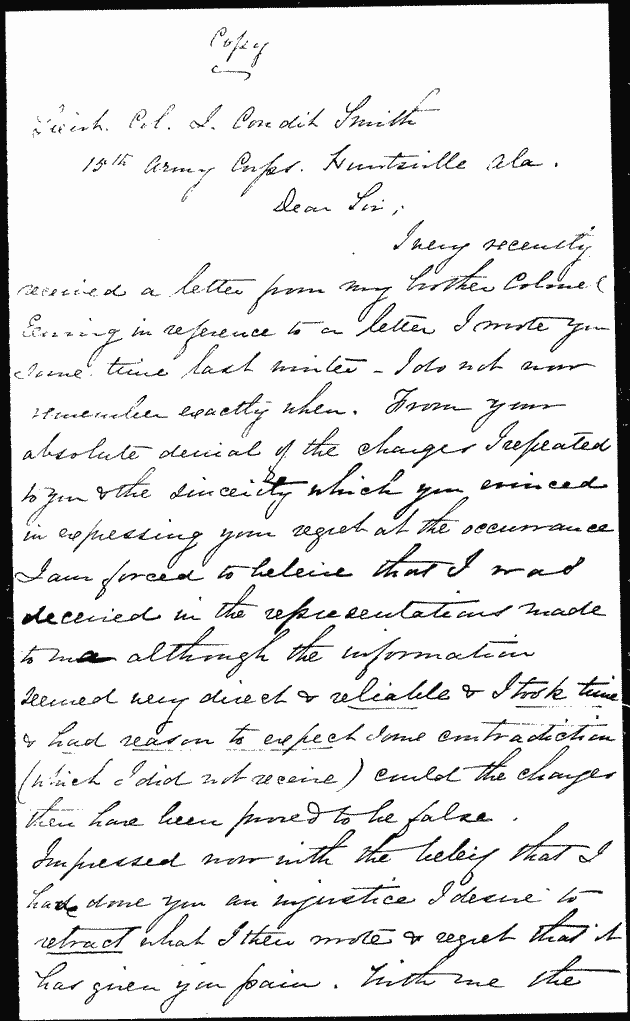 Copy
Lieut. Col. J. Condit Smith
15th Army Corps. Huntsville Ala.
Dear Sir;
I very recently
received a letter from my brother Colonel
Ewing in reference to a letter I wrote you
some time last winter - I do not now
remember exactly when. From your
absolute denial of the charges I repeated
to you & the sincerity which you evinced
in expressing your regret at the occurrance
I am forced to beleive that I was
deceived in the representations made
to me although the information
seemed very direct & reliable & I took time
& had reason to expect some contradiction
(which I did not receive) could the charges
then have been proved to be false.
Impressed now with the beleif that I
have done you an injustice I desire to
retract what I then wrote & regret that it
has given you pain. With me the